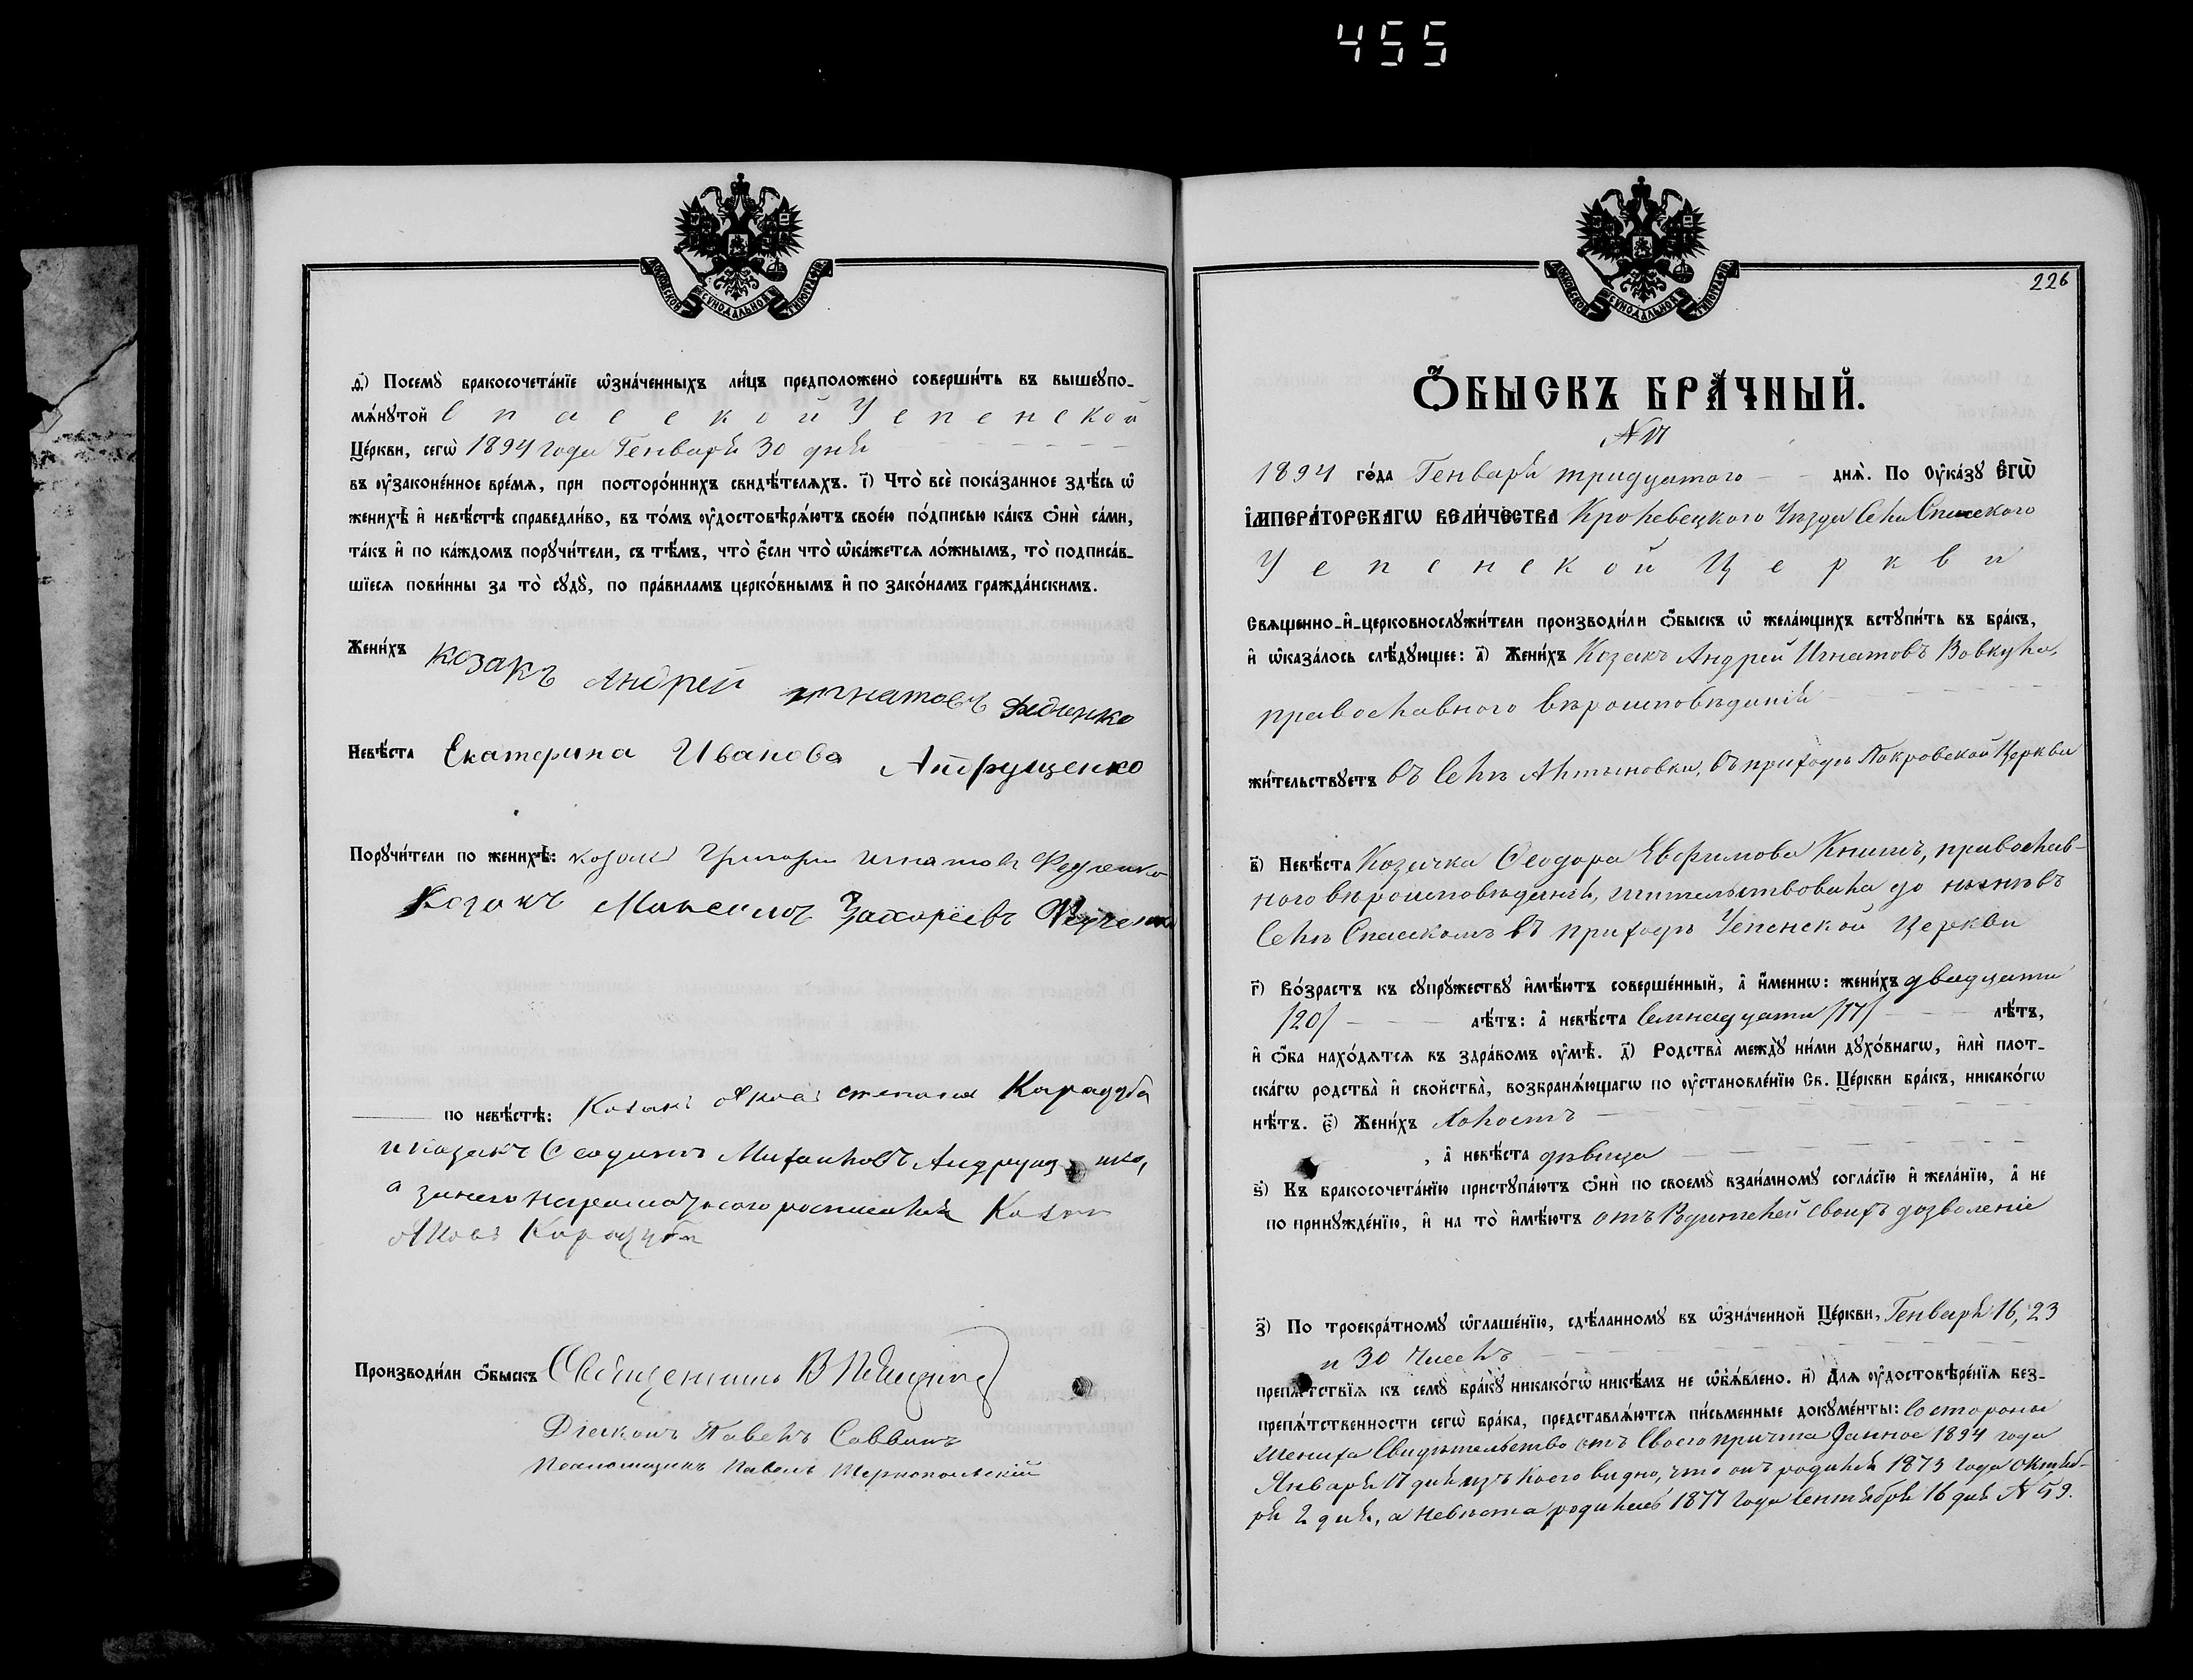 455
МОСКОВСКОЙ СѴНОДАЛЬНОЙ ТИПОГРАФІИ
д҃) Посемꙋ̀ бракосочета́нїе ѡ҆зна́ченныхъ ли́цъ предположено̀ соверши́ть въ вышеꙋпо-
мѧ́нꙋтой Спасской Успенской
Це́ркви, сегѡ̀ 1894 года Генваря 30 дня
въ ᲂу҆законе́нное вре́мѧ, при посторо́ннихъ свидѣ́телѧхъ. і҃) Что̀ всѐ пока́занное здѣ́сь ѡ҆
женихѣ̀ и҆ невѣ́стѣ справедли́во, въ то́мъ ᲂу҆достовѣрѧ́ютъ свое́ю по́дписью ка́къ ѻ҆нѝ са́ми,
та́къ и҆ по ка́ждомъ порꙋчи́тели, съ тѣ́мъ, что̀ є҆́сли что̀ ѡ҆ка́жетсѧ ло́жнымъ, то̀ подписа́в-
шїесѧ пови́нны за то̀ сꙋдꙋ̀, по пра́виламъ церко́внымъ и҆ по зако́намъ гражда́нскимъ.
Жени́хъ козакъ Андрей игнатовъ Федченко
Невѣ́ста Екатерина Иванова Андрущенко
Порꙋчи́тели по женихѣ̀: козакъ Григорий игнатовъ Федченко
Козакъ Максимъ Захарїевъ Федченко
по невѣ́стѣ: Козакъ Яковъ степановъ Карадуба
и козакъ Феодотъ Михаиловъ Андрущенко,
а за него неграмотного росписался Козак
Яковъ Карадуба
Производи́ли ѻ҆́быскъ Священникъ В
Діаконъ Павелъ Саввинъ
Псаломщикъ Павелъ Тернопольскій
МОСКОВСКОЙ СѴНОДАЛЬНОЙ ТИПОГРАФІИ
226
Ѻ҆́БЫСКЪ БРА́ЧНЫЙ.
N 17
1894 го́да Генваря тридцатого днѧ̀. По Оу҆ка́зꙋ Є҆ГѠ̀
І҆МПЕРА́ТОРСКАГѠ ВЕЛИ́ЧЕСТВА Кролевецкого Уѣзда Села Спасского
Успенской Церкви
Сващенно-и҆-церковнослꙋжи́тели производи́ли ѻ҆́быскъ ѡ҆ жела́ющихъ встꙋпи́ть въ бра́къ,
и҆ ѡ҆каза́лось слѣ́дꙋющее: а҃) Жени́хъ Козакъ Андрей Игнатовъ Вовкула,
православного вѣроисповѣданія
жи́тельствꙋетъ въ Селѣ Алтыновки, въ приходѣ Покровской Церкви
в҃) Невѣ́ста Козачка Феодора Евфимова Книшъ, православ-
ного вѣроисповѣданія, жительствовала до нынѣ въ
Селѣ Спасскомъ въ приходѣ Успенской Церкви
г҃) Во́зрастъ къ сꙋпрꙋ́жествꙋ и҆мѣ́ютъ соверше́нный, а҆ и҆́меннѡ: жени́хъ двадцати
/20/ лѣ́тъ: а҆ невѣ́ста Семнадцати /17/ лѣ́тъ,
и҆ ѻ҆́ба нахо́дѧтсѧ въ здра́вомъ ᲂу҆мѣ̀. д҃) Родства̀ междꙋ̀ ни́ми дꙋхо́внагѡ, и҆лѝ плот-
ска́гѡ родства̀ и҆ свойства̀, возбранѧ́ющагѡ по ᲂу҆становле́нїю Св. Це́ркви бра́къ, никако́гѡ
нѣ́тъ. є҃) Жени́хъ Холостъ
, а҆ невѣ́ста дѣвица
ѕ҃) Къ бракосочета́нїю пристꙋпа́ютъ ѻ҆нѝ по своемꙋ̀ взаи́мномꙋ согла́сїю и҆ жела́нїю, а҆ не
по принꙋжде́нїю, и҆ на то̀ и҆мѣ́ютъ отъ Родителей своихъ дозволеніе
з҃) По троекра́тномꙋ ѡ҆глаше́нїю, сдѣ́ланномꙋ въ ѡ҆зна́ченной Це́ркви, Генваря 16, 23
и 30 Чиселъ
препѧ́тствїѧ къ семꙋ̀ бра́кꙋ никако́гѡ никѣ́мъ не ѡ҆б̾ѧ́влено. и҃) Длѧ ᲂу҆достовѣре́нїѧ без-
препѧ́тственности сегѡ̀ бра́ка, представлѧ́ютсѧ пи́сьменные докꙋме́нты: Со стороны
Жениха Свидѣтельство отъ Своего причта Данное 1894 года
Января 17 дня изъ коего видно, что онъ родился 1873 года октяб-
ря 2 дня, а невѣста родилась 1877 года Сентября 16 дня N 59.